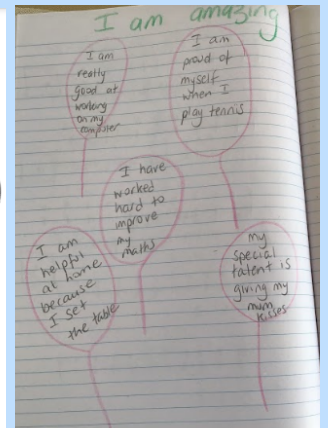 I am amazing
I am
really
good at
working
on my
computer
I am
proud of
myself
when I
play tennis
I have
worked
hard to
improve
my
maths
I am
helpful
at home
because
I set
the table
my
special
talent is
giving my
mum
kisses